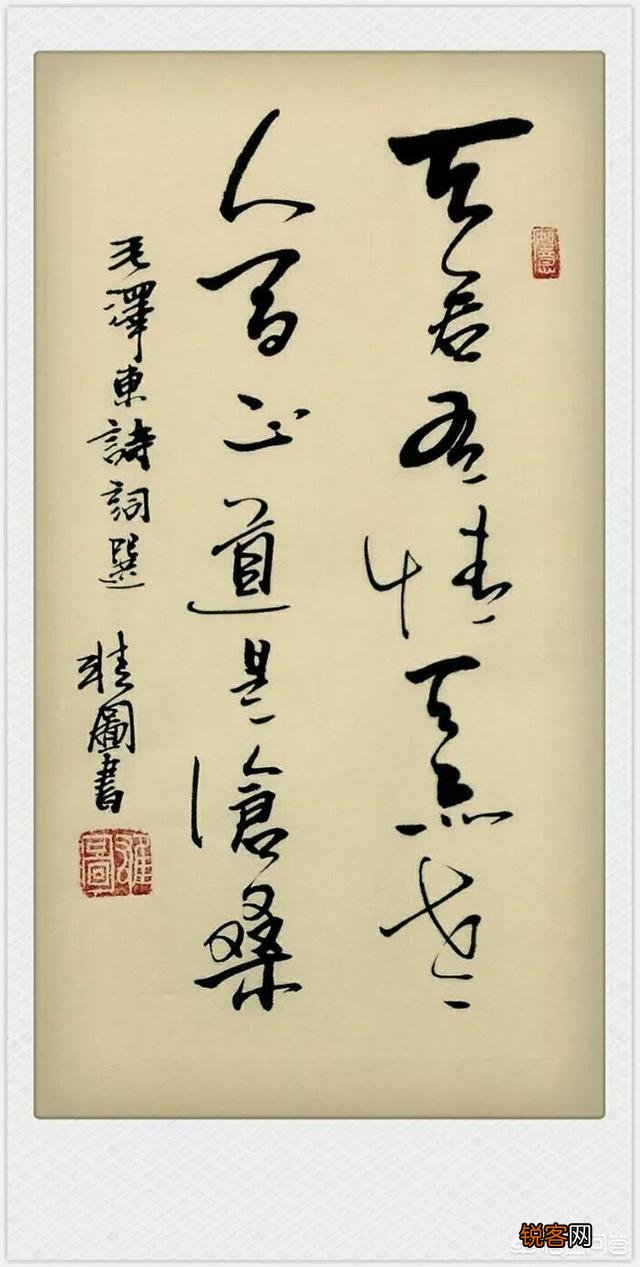 天若有情天亦老
人間正道是滄桑
毛澤東詩詞選
雄圖書
雄圖
锐客网
问答